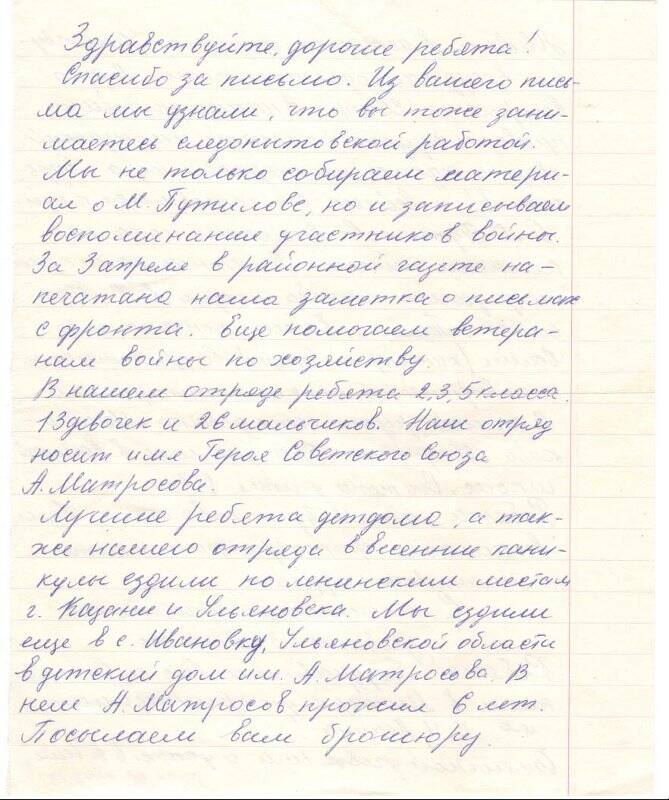 Здравствуйте, дорогие ребята!
Спасибо за письмо. Из вашего пись-
ма мы узнали, что вы тоже зани-
маетесь следопытовской работой.
Мы не только собираем матери-
ал о М. Путилове, но и записываем
воспоминания участников войны.
За 3 апреля в районной газете на-
печатана наша заметка о письмах
с фронта. Еще помогаем ветера-
нам войны по хозяйству.
В нашем отряде ребята 2,3,5 класса.
13 девочек и 26 мальчиков. Наш отряд
носит имя Героя Советского Союза
А. Матросова.
Лучшие ребята детдома, а так-
же нашего отряда в весенние кани-
кулы ездили по ленинским местам
г. Казани и Ульяновска. Мы ездили
еще в с. Ивановку, Ульяновской области
в детский дом им. А. Матросова. В
нем А. Матросов прожил 6 лет.
Посылаем вам брошюру.